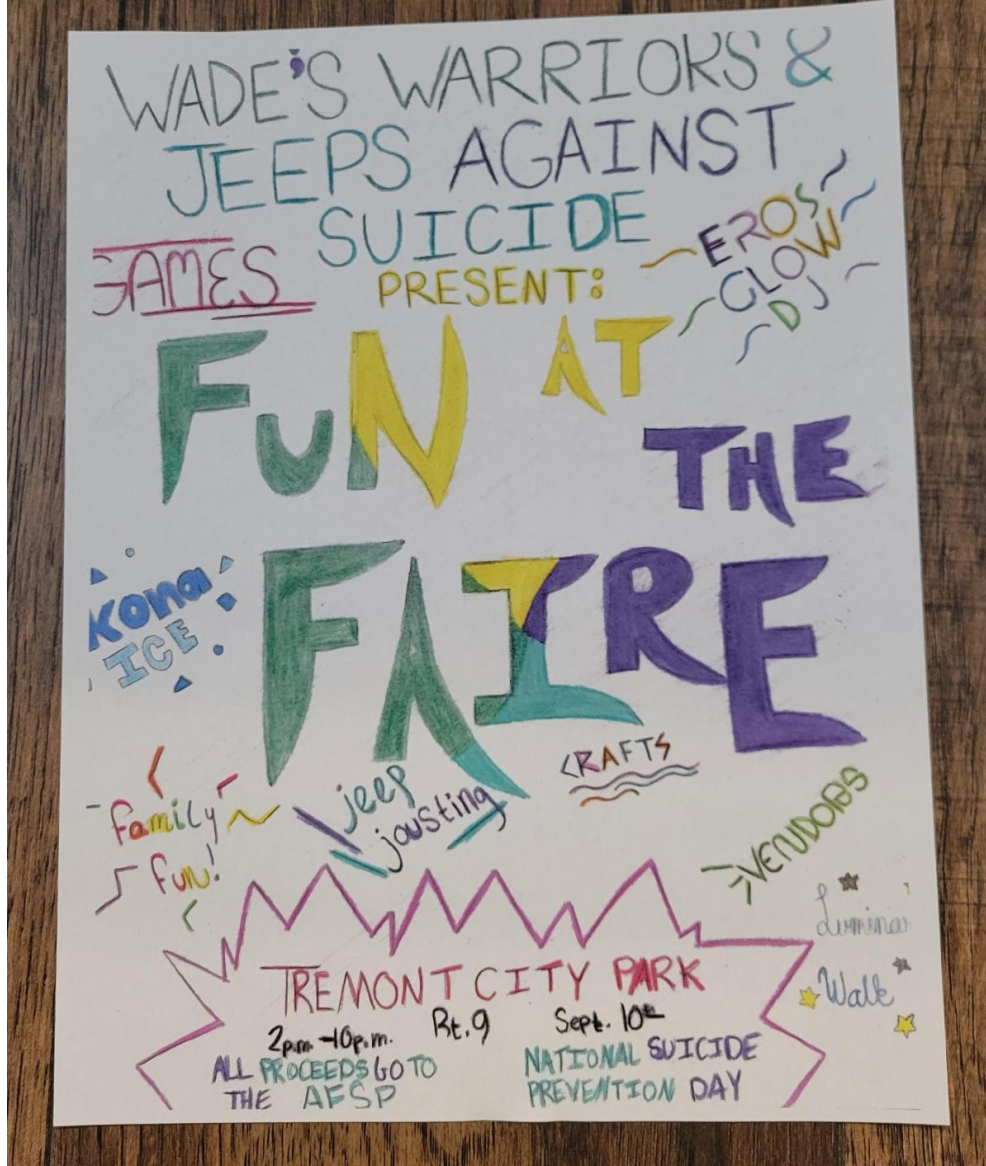 WADE'S WARRIORS &
JEEPS AGAINST
SUICIDE
GAMES
PRESENT:
EROS
GLOW
DJ
FUN AT
THE
FAIRE
KONA
ICE
CRAFTS
family
fun!
jeep
jousting
VENDORS
Lumina
Walk
TREMONT CITY PARK
2p.m.-10p.m. Rt. 9 Sept. 10th
ALL PROCEEDS GO TO
THE AFSP
NATIONAL SUICIDE
PREVENTION DAY